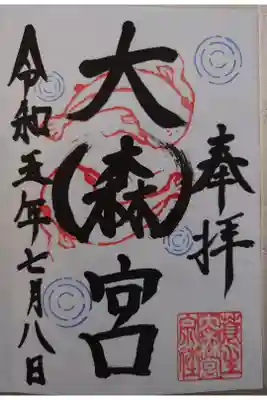 奉拝
大森宮
令和五年七月八日